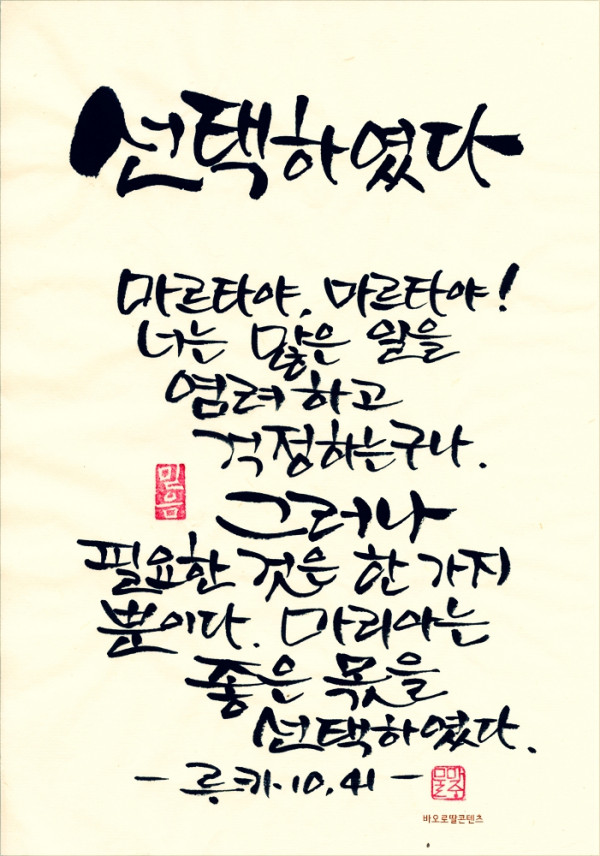 선택하였다
마르타야, 마르타야!
너는 많은 일을
염려하고
걱정하는구나.
믿음
그러나
필요한 것은 한 가지
뿐이다. 마리아는
좋은 몫을
선택하였다.
- 루카. 10, 41 -
바오로딸콘텐츠